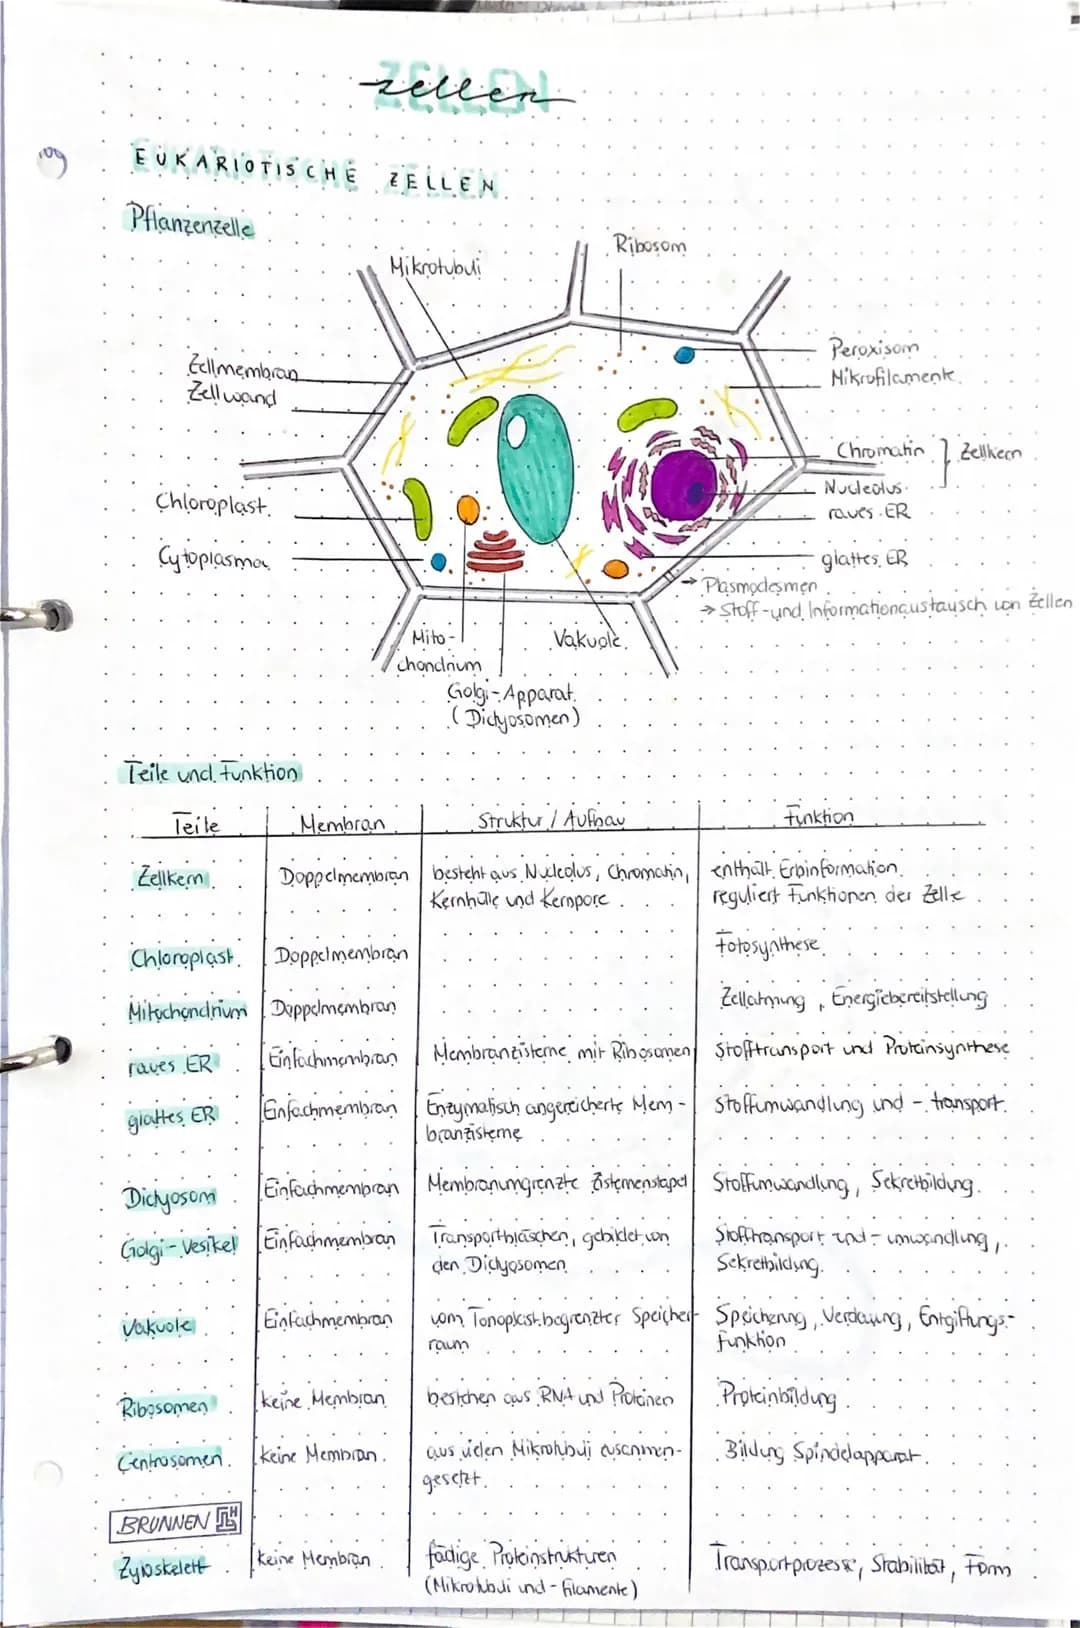 ZELLEN
zellen
EUKARIOTISCHE ZELLEN
Pflanzenzelle
Mikrotubuli
Ribosom
Zellmembran
Zellwand
Peroxisom
Mikrofilamente
Chromatin } Zellkern
Nucleolus
raues ER
glattes ER
Chloroplast
Cytoplasma
→ Plasmodesmen
→ Stoff-und Informationaustausch von Zellen
Mito-
chondrium
Vakuole
Golgi-Apparat
(Dictyosomen)
Teile und Funktion
Teile Membran Struktur / Aufbau Funktion
Zellkern Doppelmembran besteht aus Nucleolus, Chromatin, enthält Erbinformation
Kernhülle und Kernpore reguliert Funktionen der Zelle
Chloroplast Doppelmembran Fotosynthese
Mitochondrium Doppelmembran Zellatmung, Energiebereitstellung
raues ER Einfachmembran Membranzisterne mit Ribosomen Stofftransport und Proteinsynthese
glattes ER Einfachmembran Enzymatisch angereicherte Mem- Stoffumwandlung und - transport
branzisterne
Dictyosom Einfachmembran Membranumgrenzte Zisternenstapel Stoffumwandlung, Sekretbildung
Golgi-Vesikel Einfachmembran Transportbläschen, gebildet von Stofftransport und - umwandlung,
den Dictyosomen Sekretbildung
Vakuole Einfachmembran vom Tonoplast begrenzter Speicher- Speicherung, Verdauung, Entgiftungs-
raum funktion
Ribosomen keine Membran bestehen aus RNA und Proteinen Proteinbildung
Centrosomen keine Membran aus vielen Mikrotubuli zusammen- Bildung Spindelapparat
gesetzt
BRUNNEN
Zytoskelett keine Membran fädige Proteinstrukturen Transportprozesse, Stabilität, Form
(Mikrotubuli und - filamente)